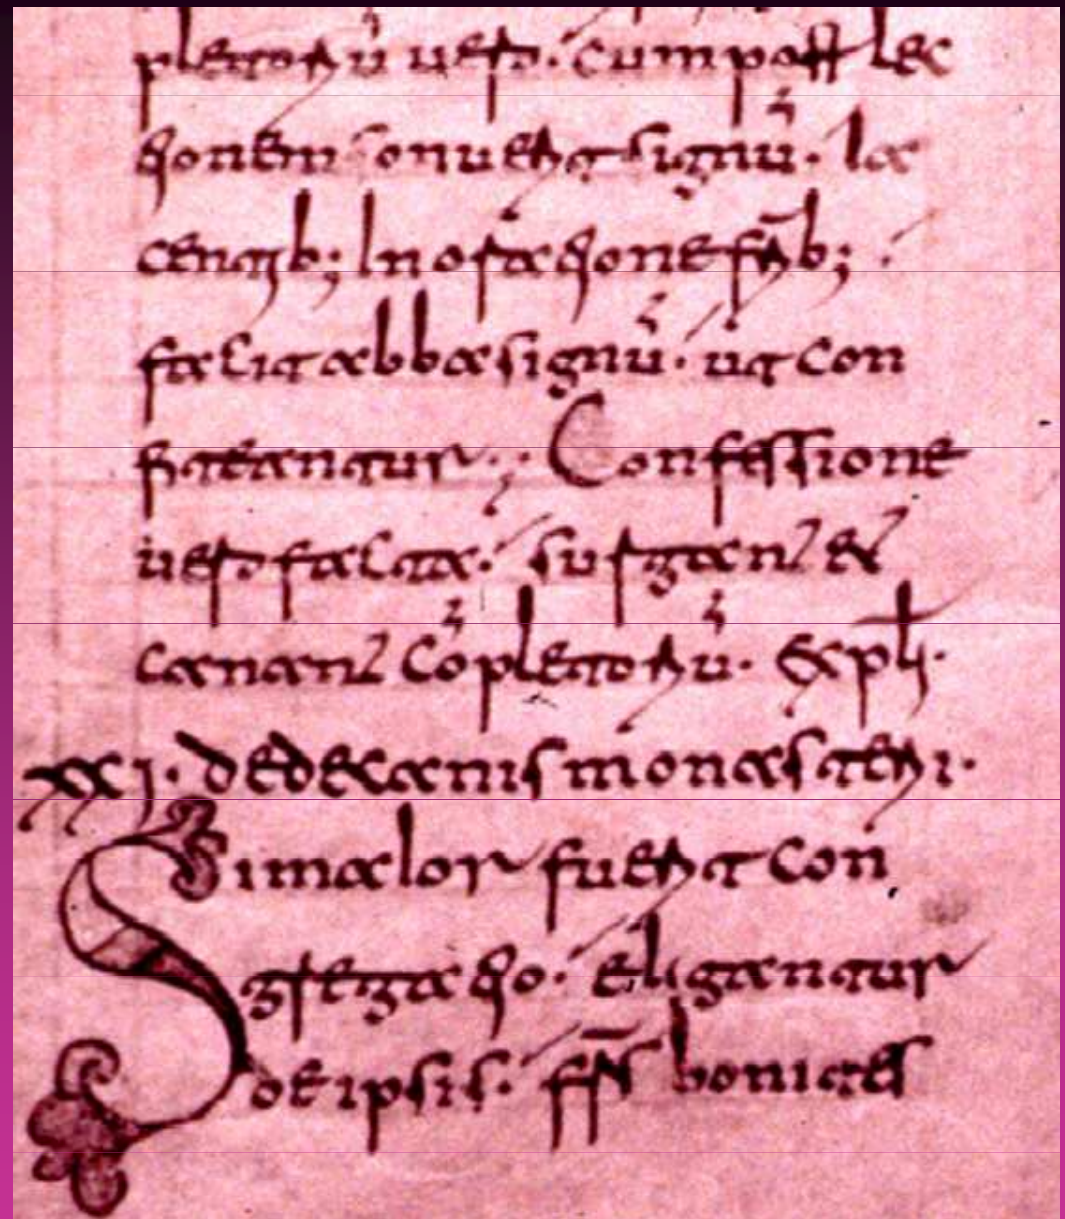 pletoriũ uero. cum post lec
tionem sonuerit signũ. Ia
centib; In oratione fr̃b;
faciat abba signũ. ut con
fiteantur.; Confessione
uero facta. surgant et
canant cõpletoriũ. Expli.
xxi. de decanis monasteri.
Si maior fuerit con
gregatio. eligantur
de ipsis. fr̃s boni tes